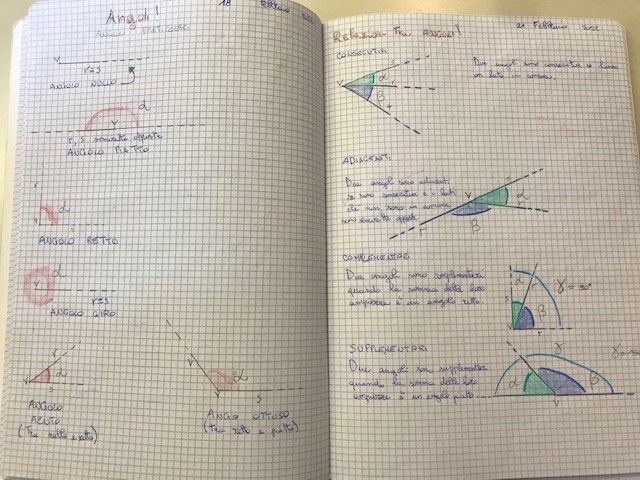 Angoli!
18 Febbraio
ANGOLI PARTICOLARI
V
r≡s
ANGOLO NULLO
α
V
r, s semirette opposte
ANGOLO PIATTO
r
α
s
ANGOLO RETTO
α
V
r≡s
ANGOLO GIRO
r
α
V
ANGOLO
ACUTO
(Tra nullo e retto)
α
V
s
ANGOLO OTTUSO
(tra retto e piatto)
Relazioni Tra ANGOLI!
21 Febbraio
CONSECUTIVI
Due angoli sono consecutivi se hanno
un lato in comune.
V
α
r
β
ADIACENTI
Due angoli sono adiacenti
se sono consecutivi e i lati
che non sono in comune
sono semirette opposte
V
α
β
r
COMPLEMENTARI
Due angoli sono complementari
quando la somma delle loro
ampiezze è un angolo retto.
α
s
β
γ = 90°
V
r
SUPPLEMENTARI
Due angoli sono supplementari
quando la somma delle loro
ampiezze è un angolo piatto
γ
α
β
V